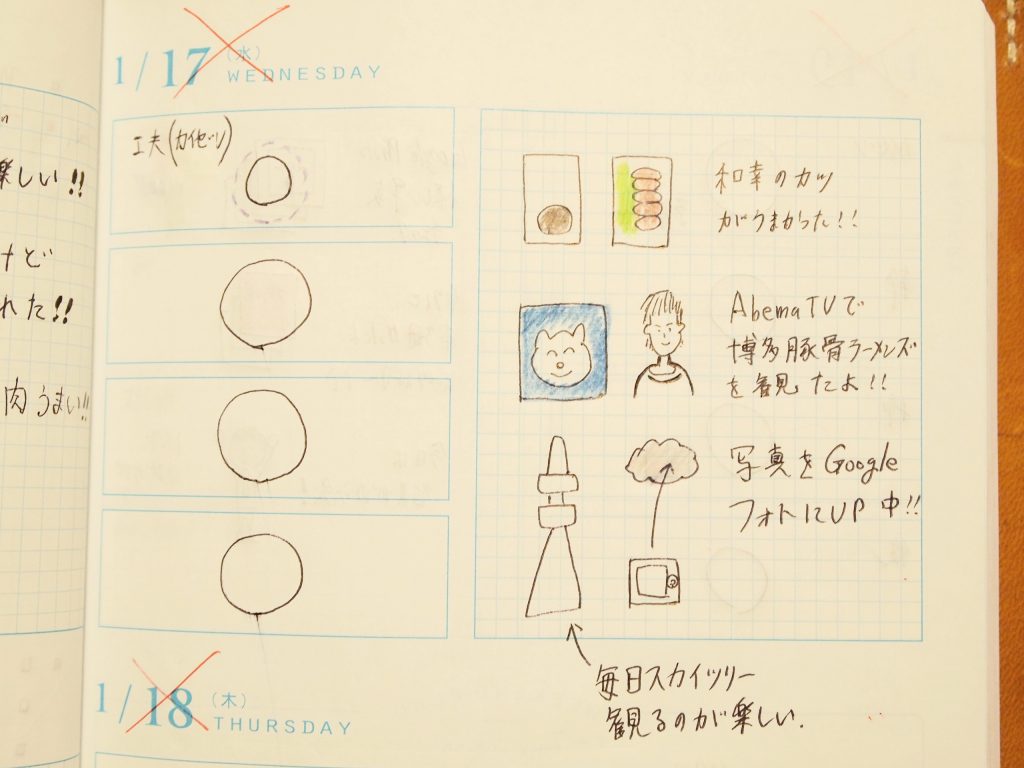 1/17 (水)
WEDNESDAY
工夫(カイゼン)
和幸のカツ
がうまかった!!
AbemaTVで
博多豚骨ラーメンズ
を観たよ!!
写真をGoogle
フォトにUP中!!
毎日スカイツリー
観るのが楽しい.
1/18 (木)
THURSDAY
楽しい!!
けど
れた!!
肉うまい!!